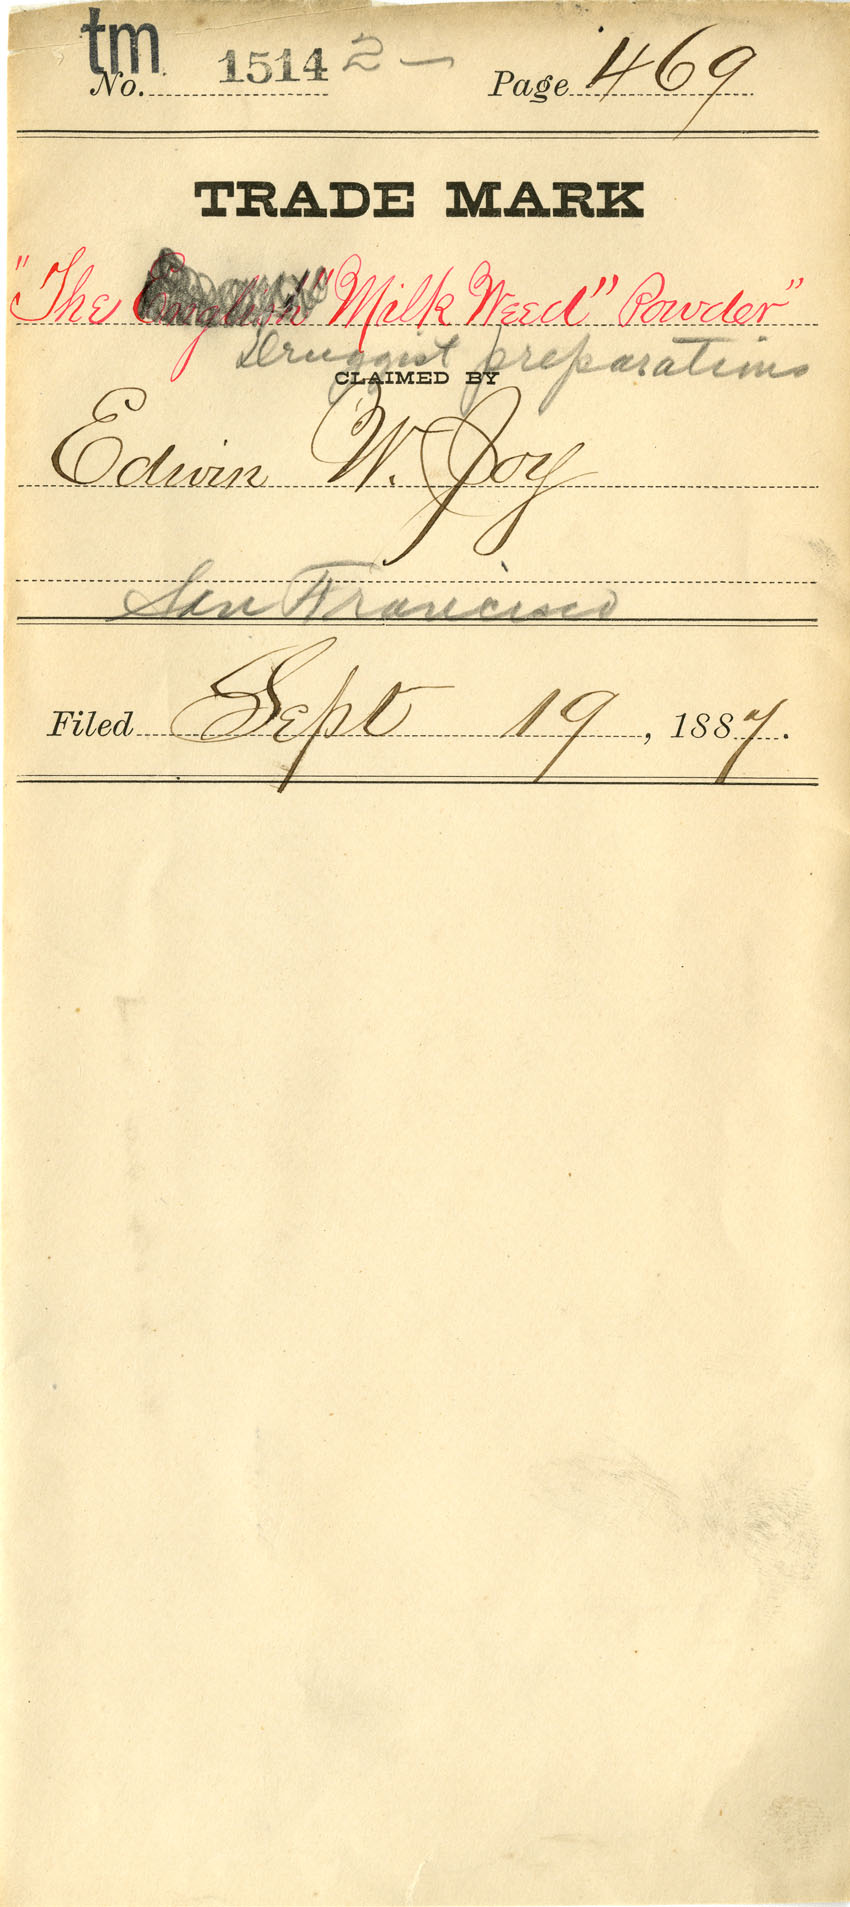 tm
No. 1514 2 — Page 469
TRADE MARK
"The English "Milk Weed" Powder"
Druggist preparations
CLAIMED BY
Edwin W. Joy
San Francisco
Filed Sept 19, 1887.